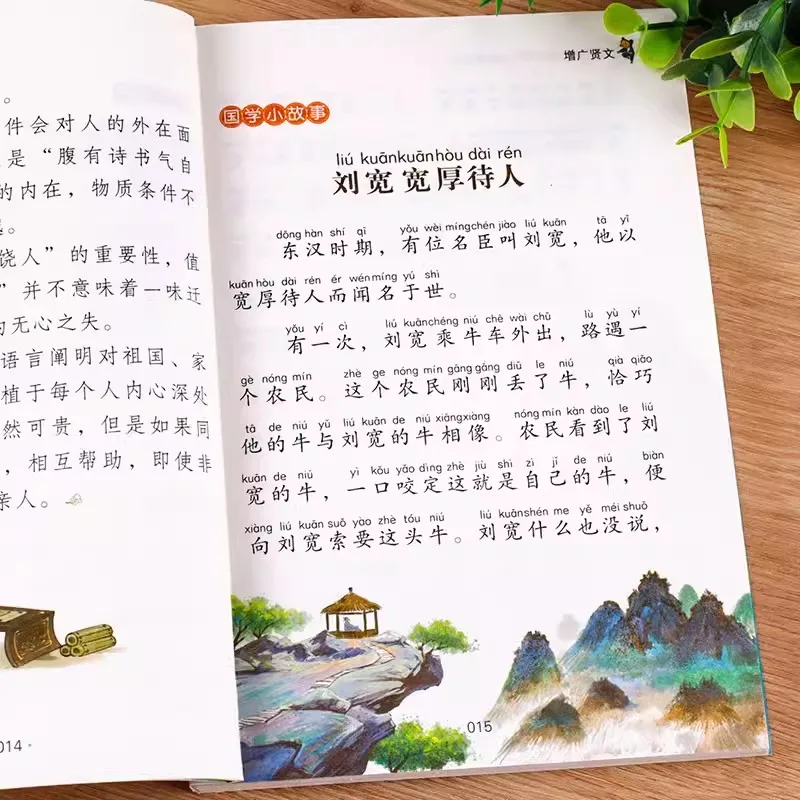 。
件会对人的外在面
是“腹有诗书气自
的内在，物质条件不
。
饶人”的重要性，值
”并不意味着一味迁
的无心之失。
语言阐明对祖国、家
植于每个人内心深处
然可贵，但是如果同
，相互帮助，即使非
亲人。
014
增广贤文
国学小故事
liú kuānkuānhòu dài rén
刘宽 宽厚待人
dōng hàn shí qī yǒu wèi míngchén jiào liú kuān tā yǐ
东汉时期，有位名臣叫刘宽，他以
kuān hòu dài rén ér wén míng yú shì
宽厚待人而闻名于世。
yǒu yí cì liú kuānchéng niú chē wài chū lù yù yí
有一次，刘宽乘牛车外出，路遇一
gè nóng mín zhè ge nóng mín gāng gāng diū le niú qià qiǎo
个农民。这个农民刚刚丢了牛，恰巧
tā de niú yǔ liú kuān de niú xiāngxiàng nóng mín kàn dào le liú
他的牛与刘宽的牛相像。农民看到了刘
kuān de niú yì kǒu yǎo dìng zhè jiù shì zì jǐ de niú biàn
宽的牛，一口咬定这就是自己的牛，便
xiàng liú kuān suǒ yào zhè tóu niú liú kuānshén me yě méi shuō
向刘宽索要这头牛。刘宽什么也没说，
015